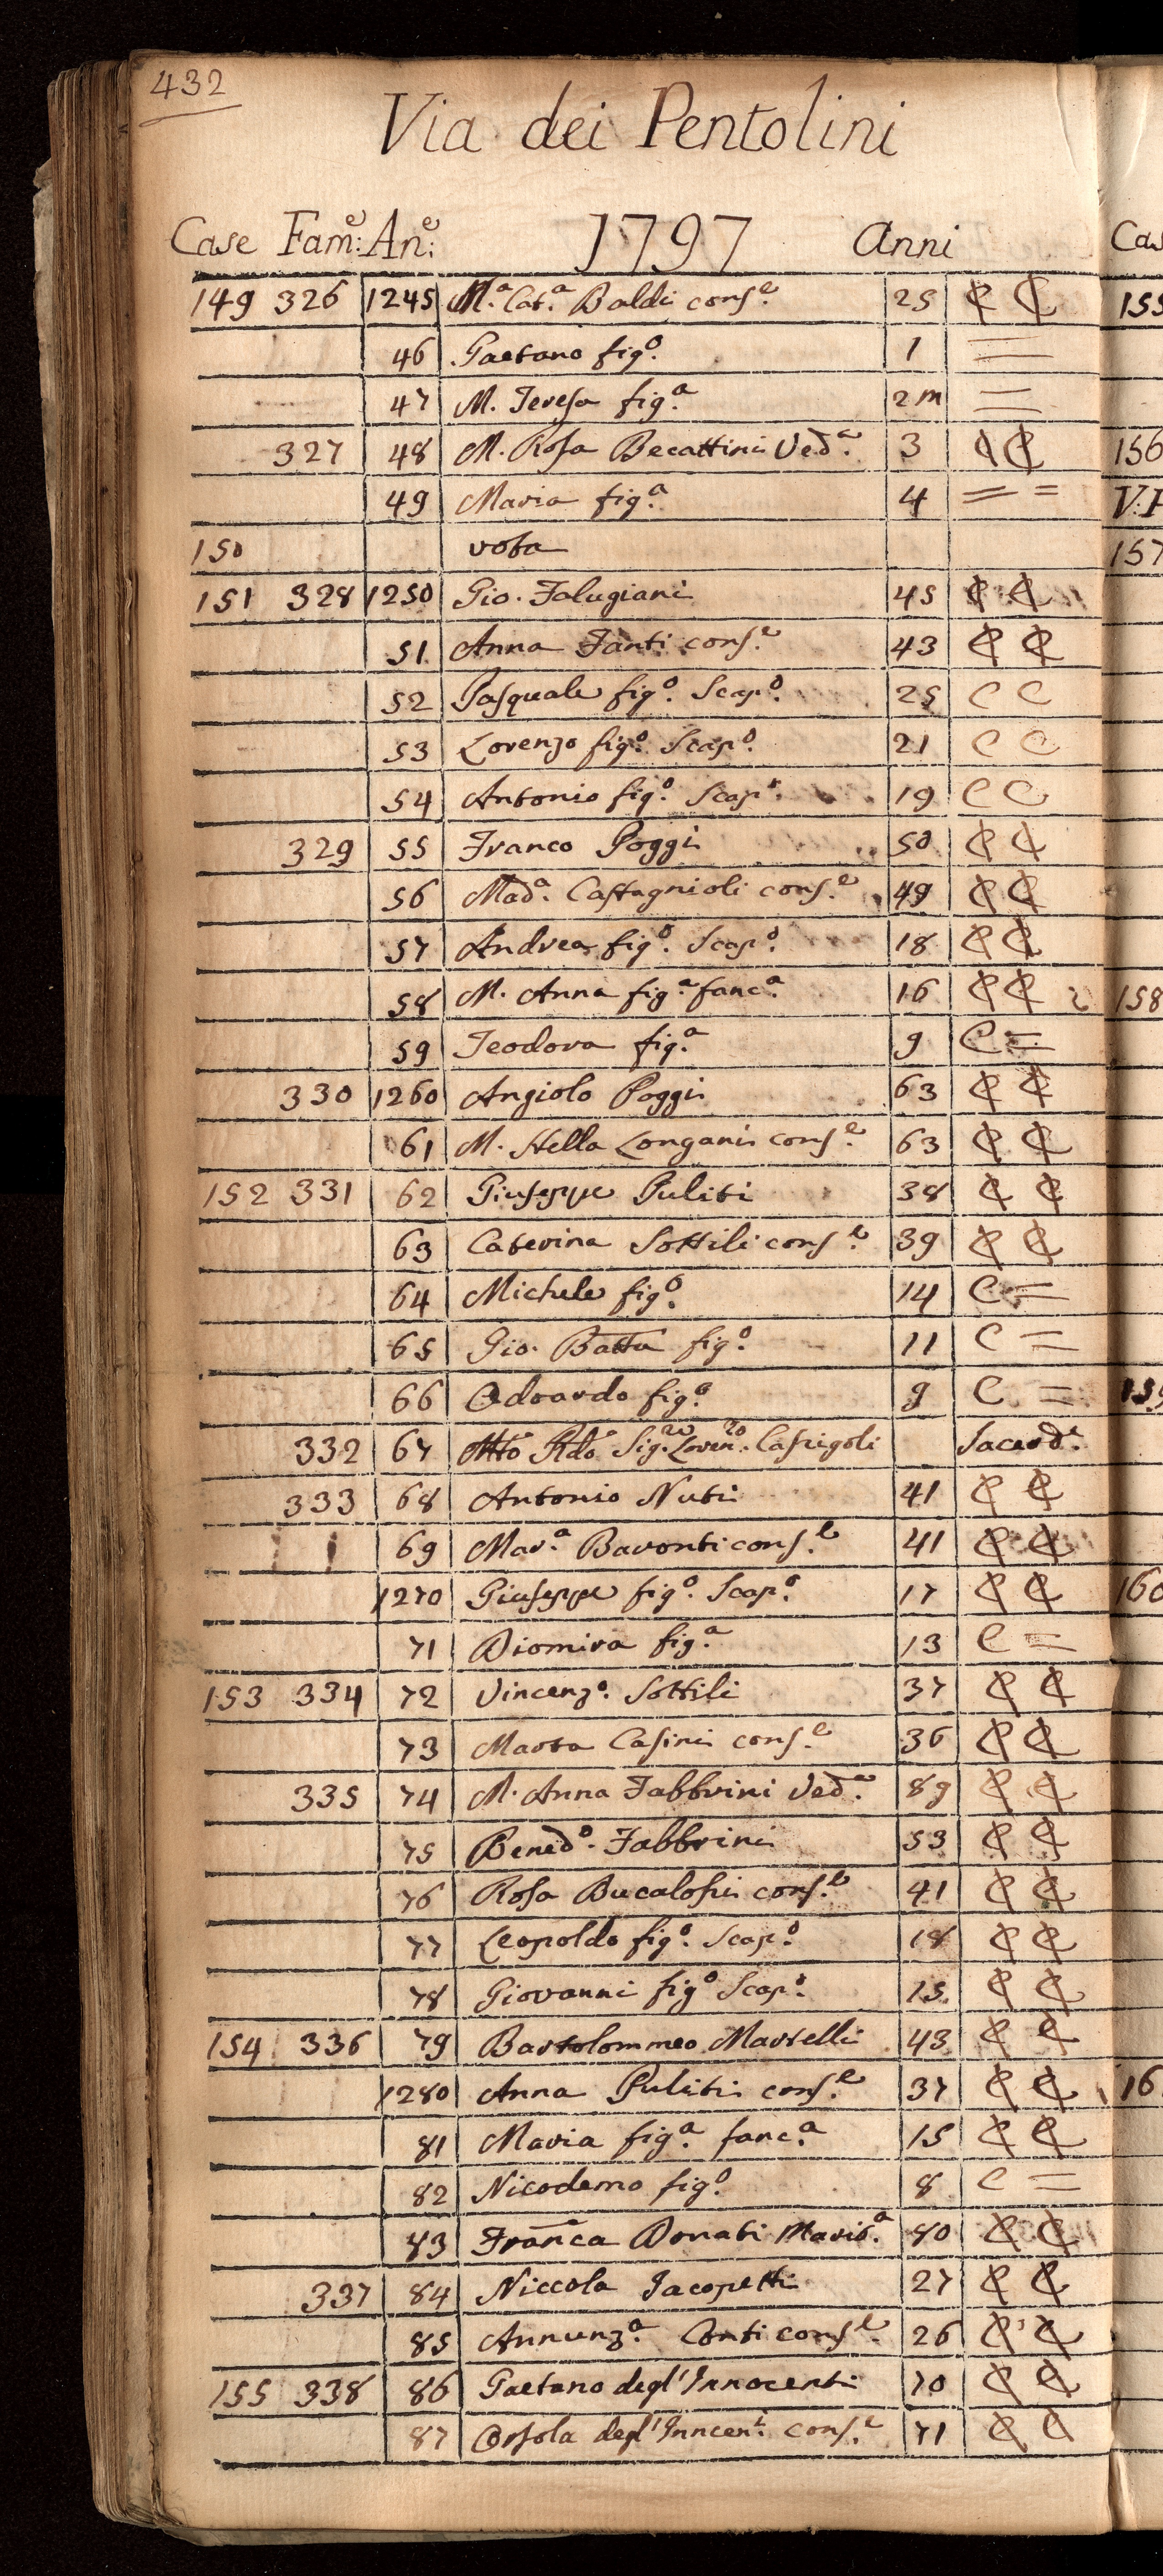 432
Via dei Pentolini
Case Fam:e An:e 1797 Anni
149 326 1245 M.a Cat.a Baldi cons.e 25 C C
46 Gaetano fig.o 1 =
47 M. Teresa fig.a 2 m =
327 48 M. Rosa Becattini Ved.a 3 C C
49 Maria fig.a 4 = =
150 vota
151 328 1250 Gio. Falugiani 45 C C
51 Anna Fanti cons.e 43 C C
52 Pasquale fig.o Scap.o 25 C C
53 Lorenzo fig.o Scap.o 21 C C
54 Antonio fig.o Scap.o 19 C C
329 55 Franco Poggi 50 C C
56 Mad.a Castagnioli cons.e 49 C C
57 Andrea fig.o Scap.o 18 C C
58 M. Anna fig.a fanc.a 16 C C
59 Teodora fig.a 9 C =
330 1260 Angiolo Poggi 63 C C
61 M. Stella Longani cons.e 63 C C
152 331 62 Giuseppe Puliti 38 C C
63 Caterina Sottili cons.e 39 C C
64 Michele fig.o 14 C =
65 Gio. Batta fig.o 11 C =
66 Odoardo fig.o 9 C =
332 67 Mto Rdo Sig.re Loren.zo Caspigoli Sacerd.e
333 68 Antonio Nuti 41 C C
69 Mar.a Baronti cons.e 41 C C
1270 Giuseppe fig.o Scap.o 17 C C
71 Diomira fig.a 13 C =
153 334 72 Vincenz.o Sottili 37 C C
73 Marta Casini cons.e 36 C C
335 74 M. Anna Fabbrini Ved.a 89 C C
75 Bened.o Fabbrini 53 C C
76 Rosa Bucalossi cons.e 41 C C
77 Leopoldo fig.o Scap.o 18 C C
78 Giovanni fig.o Scap.o 15 C C
154 336 79 Bartolommeo Martelli 43 C C
1280 Anna Puliti cons.e 37 C C
81 Maria fig.a fanc.a 15 C C
82 Nicodemo fig.o 8 C =
83 Franca Donati Marit.a 80 C C
337 84 Niccola Jacopetti 27 C C
85 Annunz.a Conti cons.e 26 C C
155 338 86 Gaetano degl'Innocenti 70 C C
87 Orsola degl'Inncen.i cons.e 71 C C
Cas
155
156
157
158
160
16